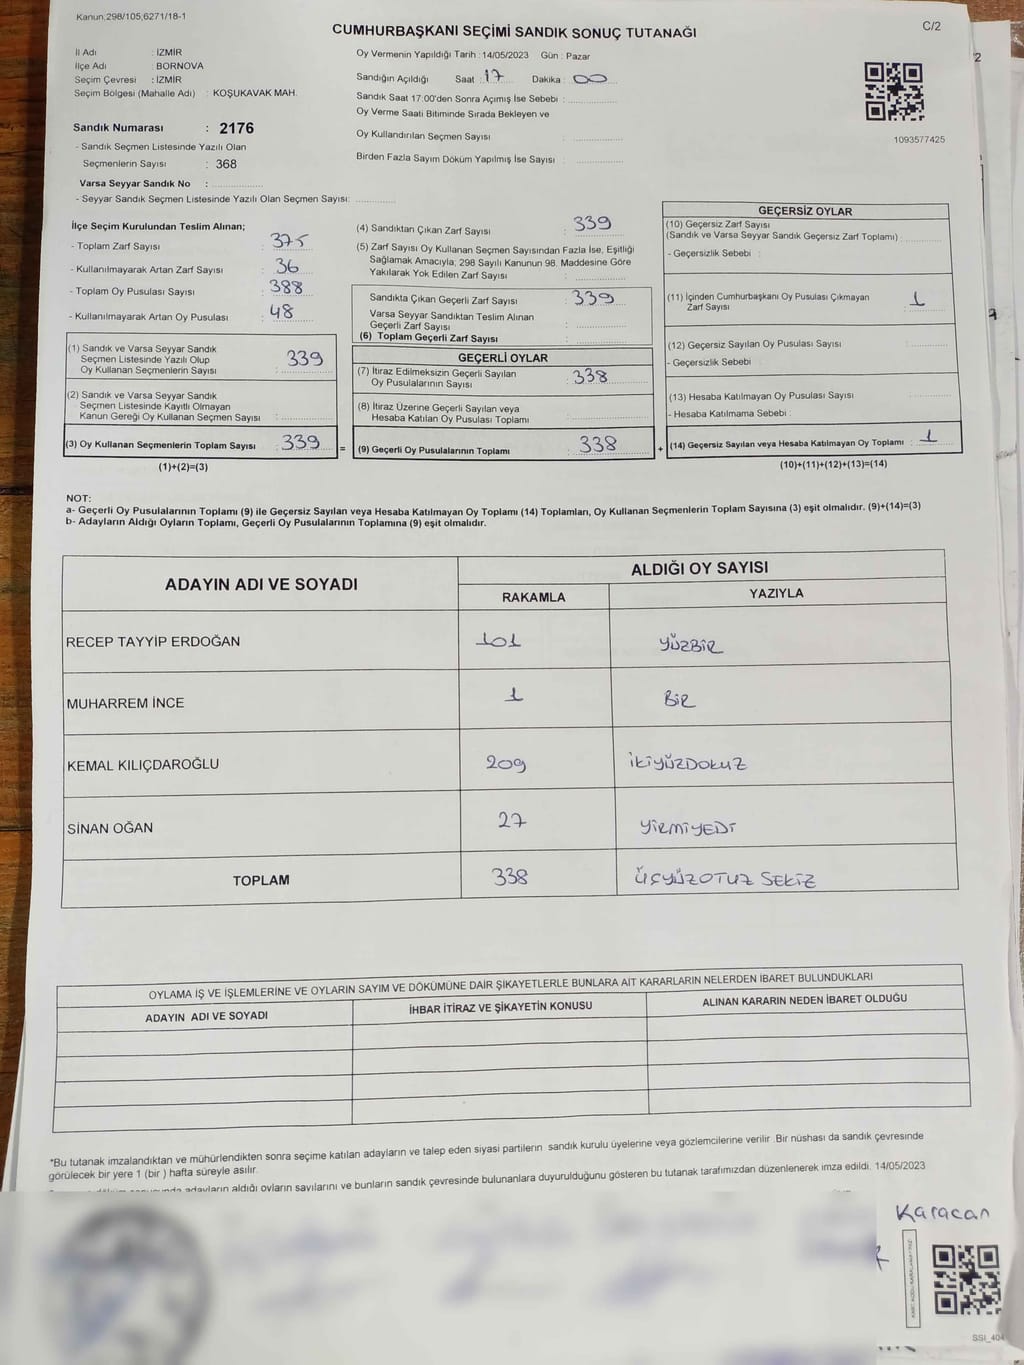 Kanun;298/105,6271/18-1
CUMHURBAŞKANI SEÇİMİ SANDIK SONUÇ TUTANAĞI
C/2
İl Adı : İZMİR
İlçe Adı : BORNOVA
Seçim Çevresi : İZMİR
Seçim Bölgesi (Mahalle Adı) : KOŞUKAVAK MAH.
Sandık Numarası : 2176
- Sandık Seçmen Listesinde Yazılı Olan
Seçmenlerin Sayısı : 368
Varsa Seyyar Sandık No :
- Seyyar Sandık Seçmen Listesinde Yazılı Olan Seçmen Sayısı:
Oy Vermenin Yapıldığı Tarih : 14/05/2023 Gün : Pazar
Sandığın Açıldığı Saat : 17 Dakika : 00
Sandık Saat 17:00'den Sonra Açımış İse Sebebi :
Oy Verme Saati Bitiminde Sırada Bekleyen ve
Oy Kullandırılan Seçmen Sayısı :
Birden Fazla Sayım Döküm Yapılmış İse Sayısı :
1093577425
2
İlçe Seçim Kurulundan Teslim Alınan;
- Toplam Zarf Sayısı : 375
- Kullanılmayarak Artan Zarf Sayısı : 36
- Toplam Oy Pusulası Sayısı : 388
- Kullanılmayarak Artan Oy Pusulası : 48
(1) Sandık ve Varsa Seyyar Sandık
Seçmen Listesinde Yazılı Olup
Oy Kullanan Seçmenlerin Sayısı : 339
(2) Sandık ve Varsa Seyyar Sandık
Seçmen Listesinde Kayıtlı Olmayan
Kanun Gereği Oy Kullanan Seçmen Sayısı :
(3) Oy Kullanan Seçmenlerin Toplam Sayısı : 339 =
(1)+(2)=(3)
(4) Sandıktan Çıkan Zarf Sayısı : 339
(5) Zarf Sayısı Oy Kullanan Seçmen Sayısından Fazla İse, Eşitliği
Sağlamak Amacıyla; 298 Sayılı Kanunun 98. Maddesine Göre
Yakılarak Yok Edilen Zarf Sayısı :
Sandıkta Çıkan Geçerli Zarf Sayısı : 339
Varsa Seyyar Sandıktan Teslim Alınan
Geçerli Zarf Sayısı :
(6) Toplam Geçerli Zarf Sayısı :
GEÇERLİ OYLAR
(7) İtiraz Edilmeksizin Geçerli Sayılan
Oy Pusulalarının Sayısı : 338
(8) İtiraz Üzerine Geçerli Sayılan veya
Hesaba Katılan Oy Pusulası Toplamı :
(9) Geçerli Oy Pusulalarının Toplamı : 338 +
GEÇERSİZ OYLAR
(10) Geçersiz Zarf Sayısı
(Sandık ve Varsa Seyyar Sandık Geçersiz Zarf Toplamı) :
- Geçersizlik Sebebi :
(11) İçinden Cumhurbaşkanı Oy Pusulası Çıkmayan
Zarf Sayısı : 1
(12) Geçersiz Sayılan Oy Pusulası Sayısı :
- Geçersizlik Sebebi :
(13) Hesaba Katılmayan Oy Pusulası Sayısı :
- Hesaba Katılmama Sebebi :
(14) Geçersiz Sayılan veya Hesaba Katılmayan Oy Toplamı : 1
(10)+(11)+(12)+(13)=(14)
NOT:
a- Geçerli Oy Pusulalarının Toplamı (9) ile Geçersiz Sayılan veya Hesaba Katılmayan Oy Toplamı (14) Toplamları, Oy Kullanan Seçmenlerin Toplam Sayısına (3) eşit olmalıdır. (9)+(14)=(3)
b- Adayların Aldığı Oyların Toplamı, Geçerli Oy Pusulalarının Toplamına (9) eşit olmalıdır.
ADAYIN ADI VE SOYADI
ALDIĞI OY SAYISI
RAKAMLA YAZIYLA
RECEP TAYYİP ERDOĞAN 101 YÜZBİR
MUHARREM İNCE 1 BİR
KEMAL KILIÇDAROĞLU 209 İKİYÜZDOKUZ
SİNAN OĞAN 27 YİRMİYEDİ
TOPLAM 338 ÜÇYÜZOTUZ SEKİZ
OYLAMA İŞ VE İŞLEMLERİNE VE OYLARIN SAYIM VE DÖKÜMÜNE DAİR ŞİKAYETLERLE BUNLARA AİT KARARLARIN NELERDEN İBARET BULUNDUKLARI
ADAYIN ADI VE SOYADI
İHBAR İTİRAZ VE ŞİKAYETİN KONUSU
ALINAN KARARIN NEDEN İBARET OLDUĞU
*Bu tutanak imzalandıktan ve mühürlendikten sonra seçime katılan adayların ve talep eden siyasi partilerin sandık kurulu üyelerine veya gözlemcilerine verilir. Bir nüshası da sandık çevresinde
görülecek bir yere 1 (bir) hafta süreyle asılır.
adayların aldığı oyların sayılarını ve bunların sandık çevresinde bulunanlara duyurulduğunu gösteren bu tutanak tarafımızdan düzenlenerek imza edildi. 14/05/2023
Karacan
SSI_404